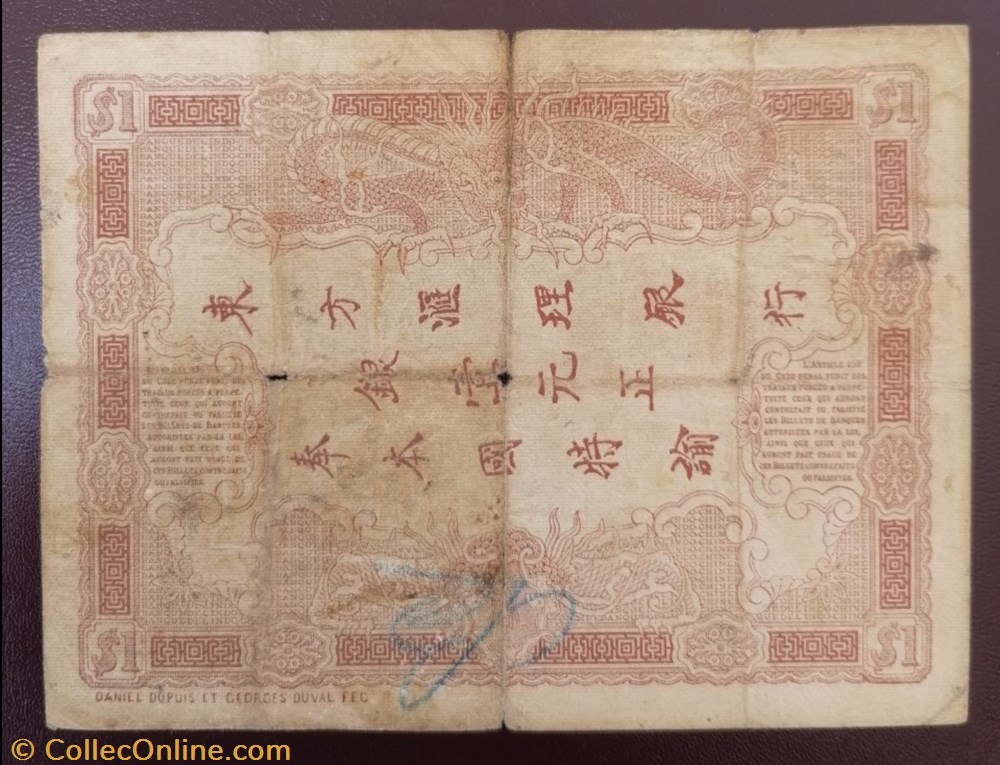 $1
$1
東方滙理銀行
銀壹元正
奉本國特諭
DU CODE PENAL PUNIT DES
TRAVAUX FORCÉS A PERPÉ-
TUITÉ CEUX QUI AURONT
CONTREFAIT OU FALSIFIÉ
LES BILLETS DE BANQUES
AUTORISÉES PAR LA LOI,
AINSI QUE CEUX QUI
AURONT FAIT USAGE DE
CES BILLETS CONTREFAITS
OU FALSIFIÉS.
L'ARTICLE 139
DU CODE PENAL PUNIT DES
TRAVAUX FORCÉS A PERPÉ-
TUITÉ CEUX QUI AURONT
CONTREFAIT OU FALSIFIÉ
LES BILLETS DE BANQUES
AUTORISÉES PAR LA LOI,
AINSI QUE CEUX QUI
AURONT FAIT USAGE DE
CES BILLETS CONTREFAITS
OU FALSIFIÉS.
$1
$1
DANIEL DUPUIS ET GEORGES DUVAL FEC
© CollecOnline.com